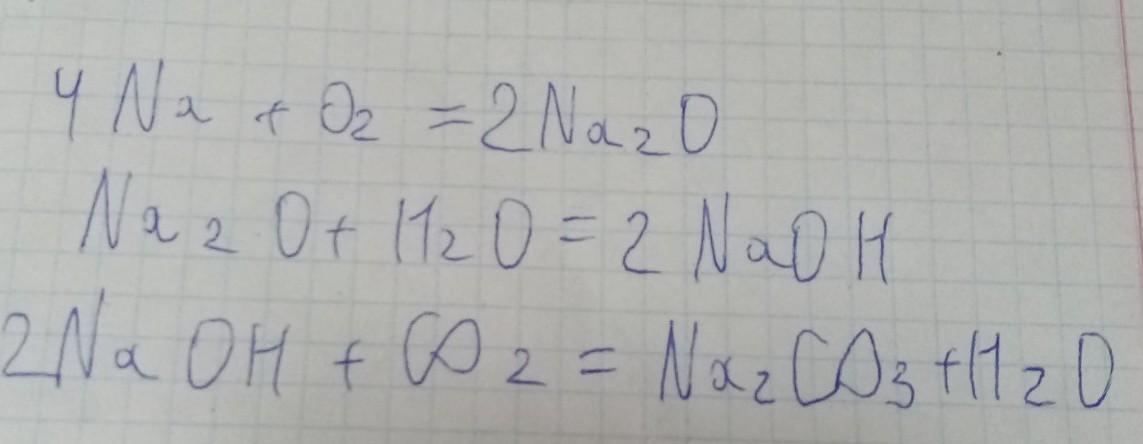 4Na + O₂ = 2Na₂O
Na₂O + H₂O = 2NaOH
2NaOH + CO₂ = Na₂CO₃ + H₂O